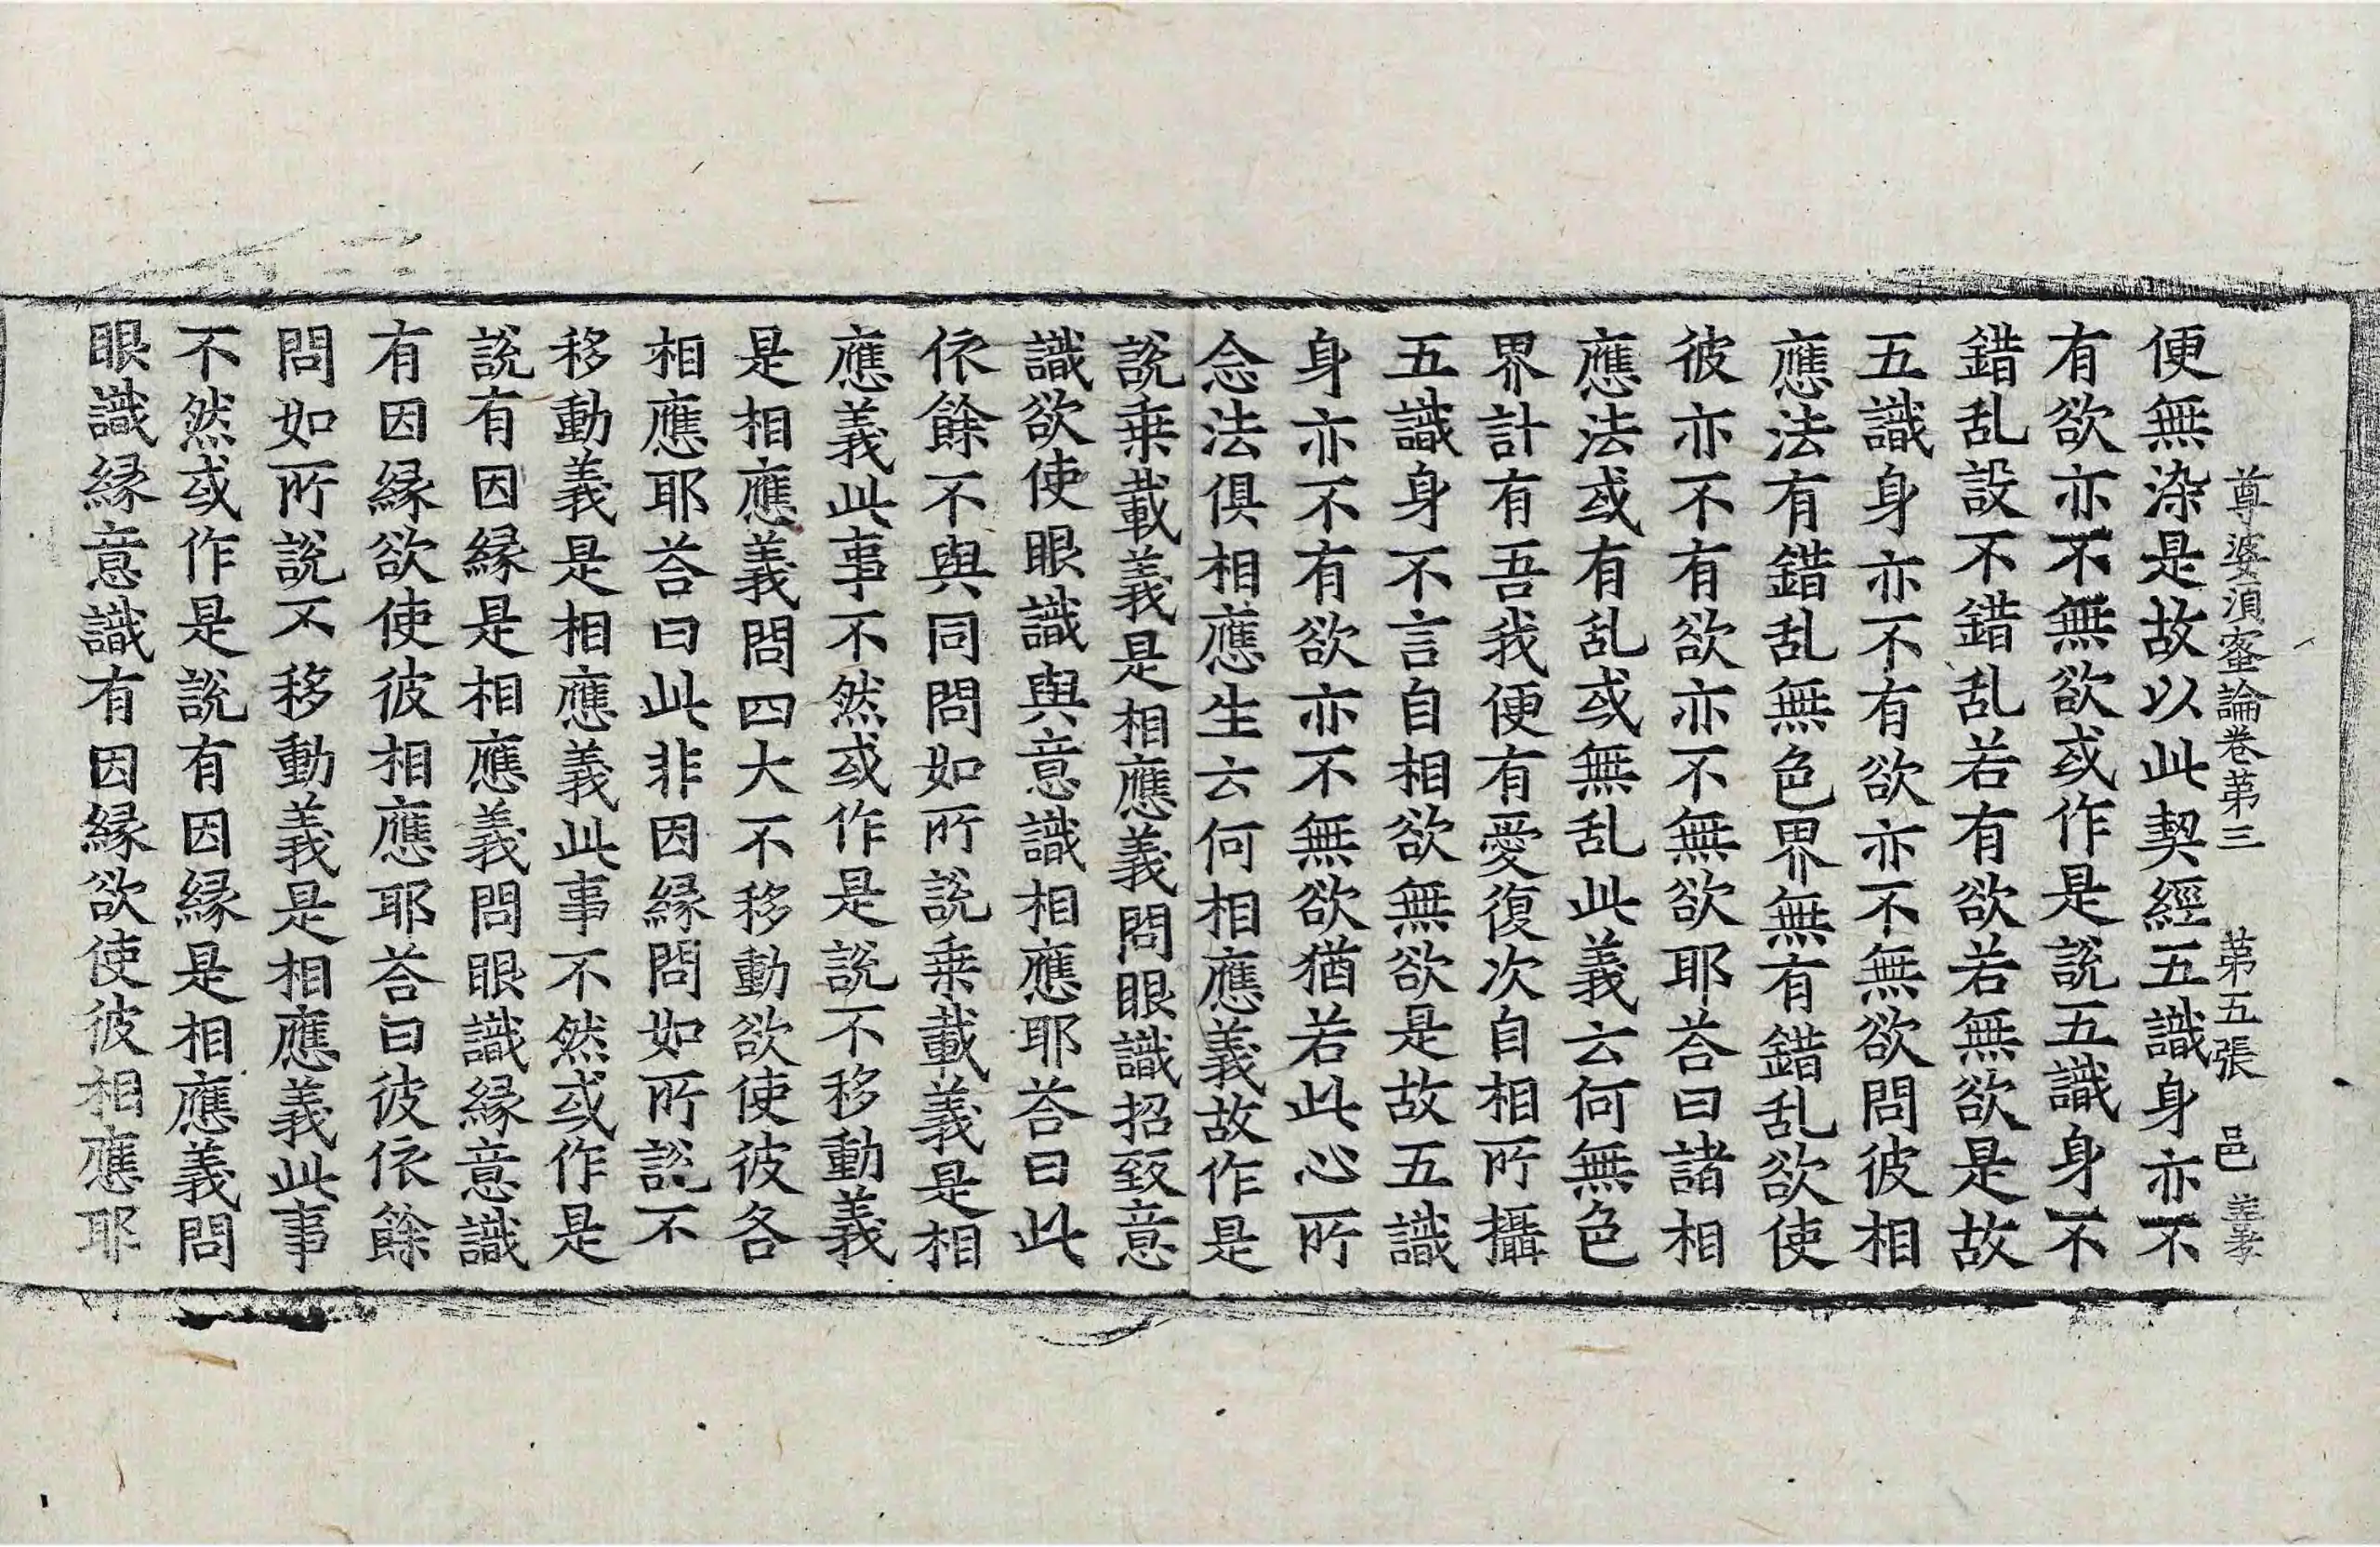 尊婆湏蜜論卷苐三 苐五張 邑
便無染是故以此契經五識身亦不
有欲亦不無欲或作是說五識身不
錯乱設不錯乱若有欲若無欲是故
五識身亦不有欲亦不無欲問彼相
應法有錯乱無色界無有錯乱欲使
彼亦不有欲亦不無欲耶荅曰諸相
應法或有乱或無乱此義云何無色
界計有吾我便有愛復次自相所攝
五識身不言自相欲無欲是故五識
身亦不有欲亦不無欲猶若此心所
念法俱相應生云何相應義故作是
說乗載義是相應義問眼識招致意
識欲使眼識與意識相應耶荅曰此
依餘不與同問如所說乗載義是相
應義此事不然或作是說不移動義
是相應義問四大不移動欲使彼各
相應耶荅曰此非因縁問如所說不
移動義是相應義此事不然或作是
說有因縁是相應義問眼識縁意識
有因縁欲使彼相應耶荅曰彼依餘
問如所說不移動義是相應義此事
不然或作是說有因縁是相應義問
眼識縁意識有因縁欲使彼相應耶